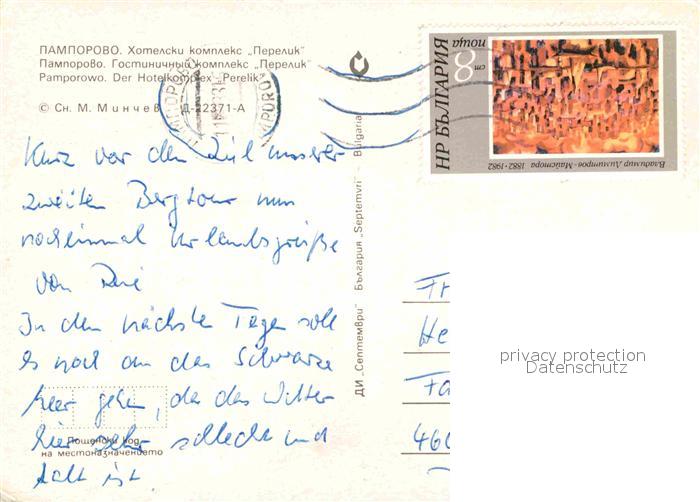 ПАМПОРОВО. Хотелски комплекс „Перелик"
Пампорово. Гостиничный комплекс „Перелик"
Pamporowo. Der Hotelkomplex „Perelik"
© Сн. М. Минчев Д-12371-А
Kurz vor dem Ziel unserer
zweiten Bergtour nun
nocheinmal Urlaubsgrüße
von
In den nächsten Tagen soll
es noch an das Schwarze
Meer gehen, da das Wetter
hier sehr schlecht und
kalt ist.
Пощенски код
на местоназначението
ДИ „Септември" България „Septemvri" Bulgaria
ПАМПОРОВО
НР БЪЛГАРИЯ
поща
8 ст
Владимир Димитров-Майстора 1882·1982
Fr
He
Fa
460
privacy protection
Datenschutz